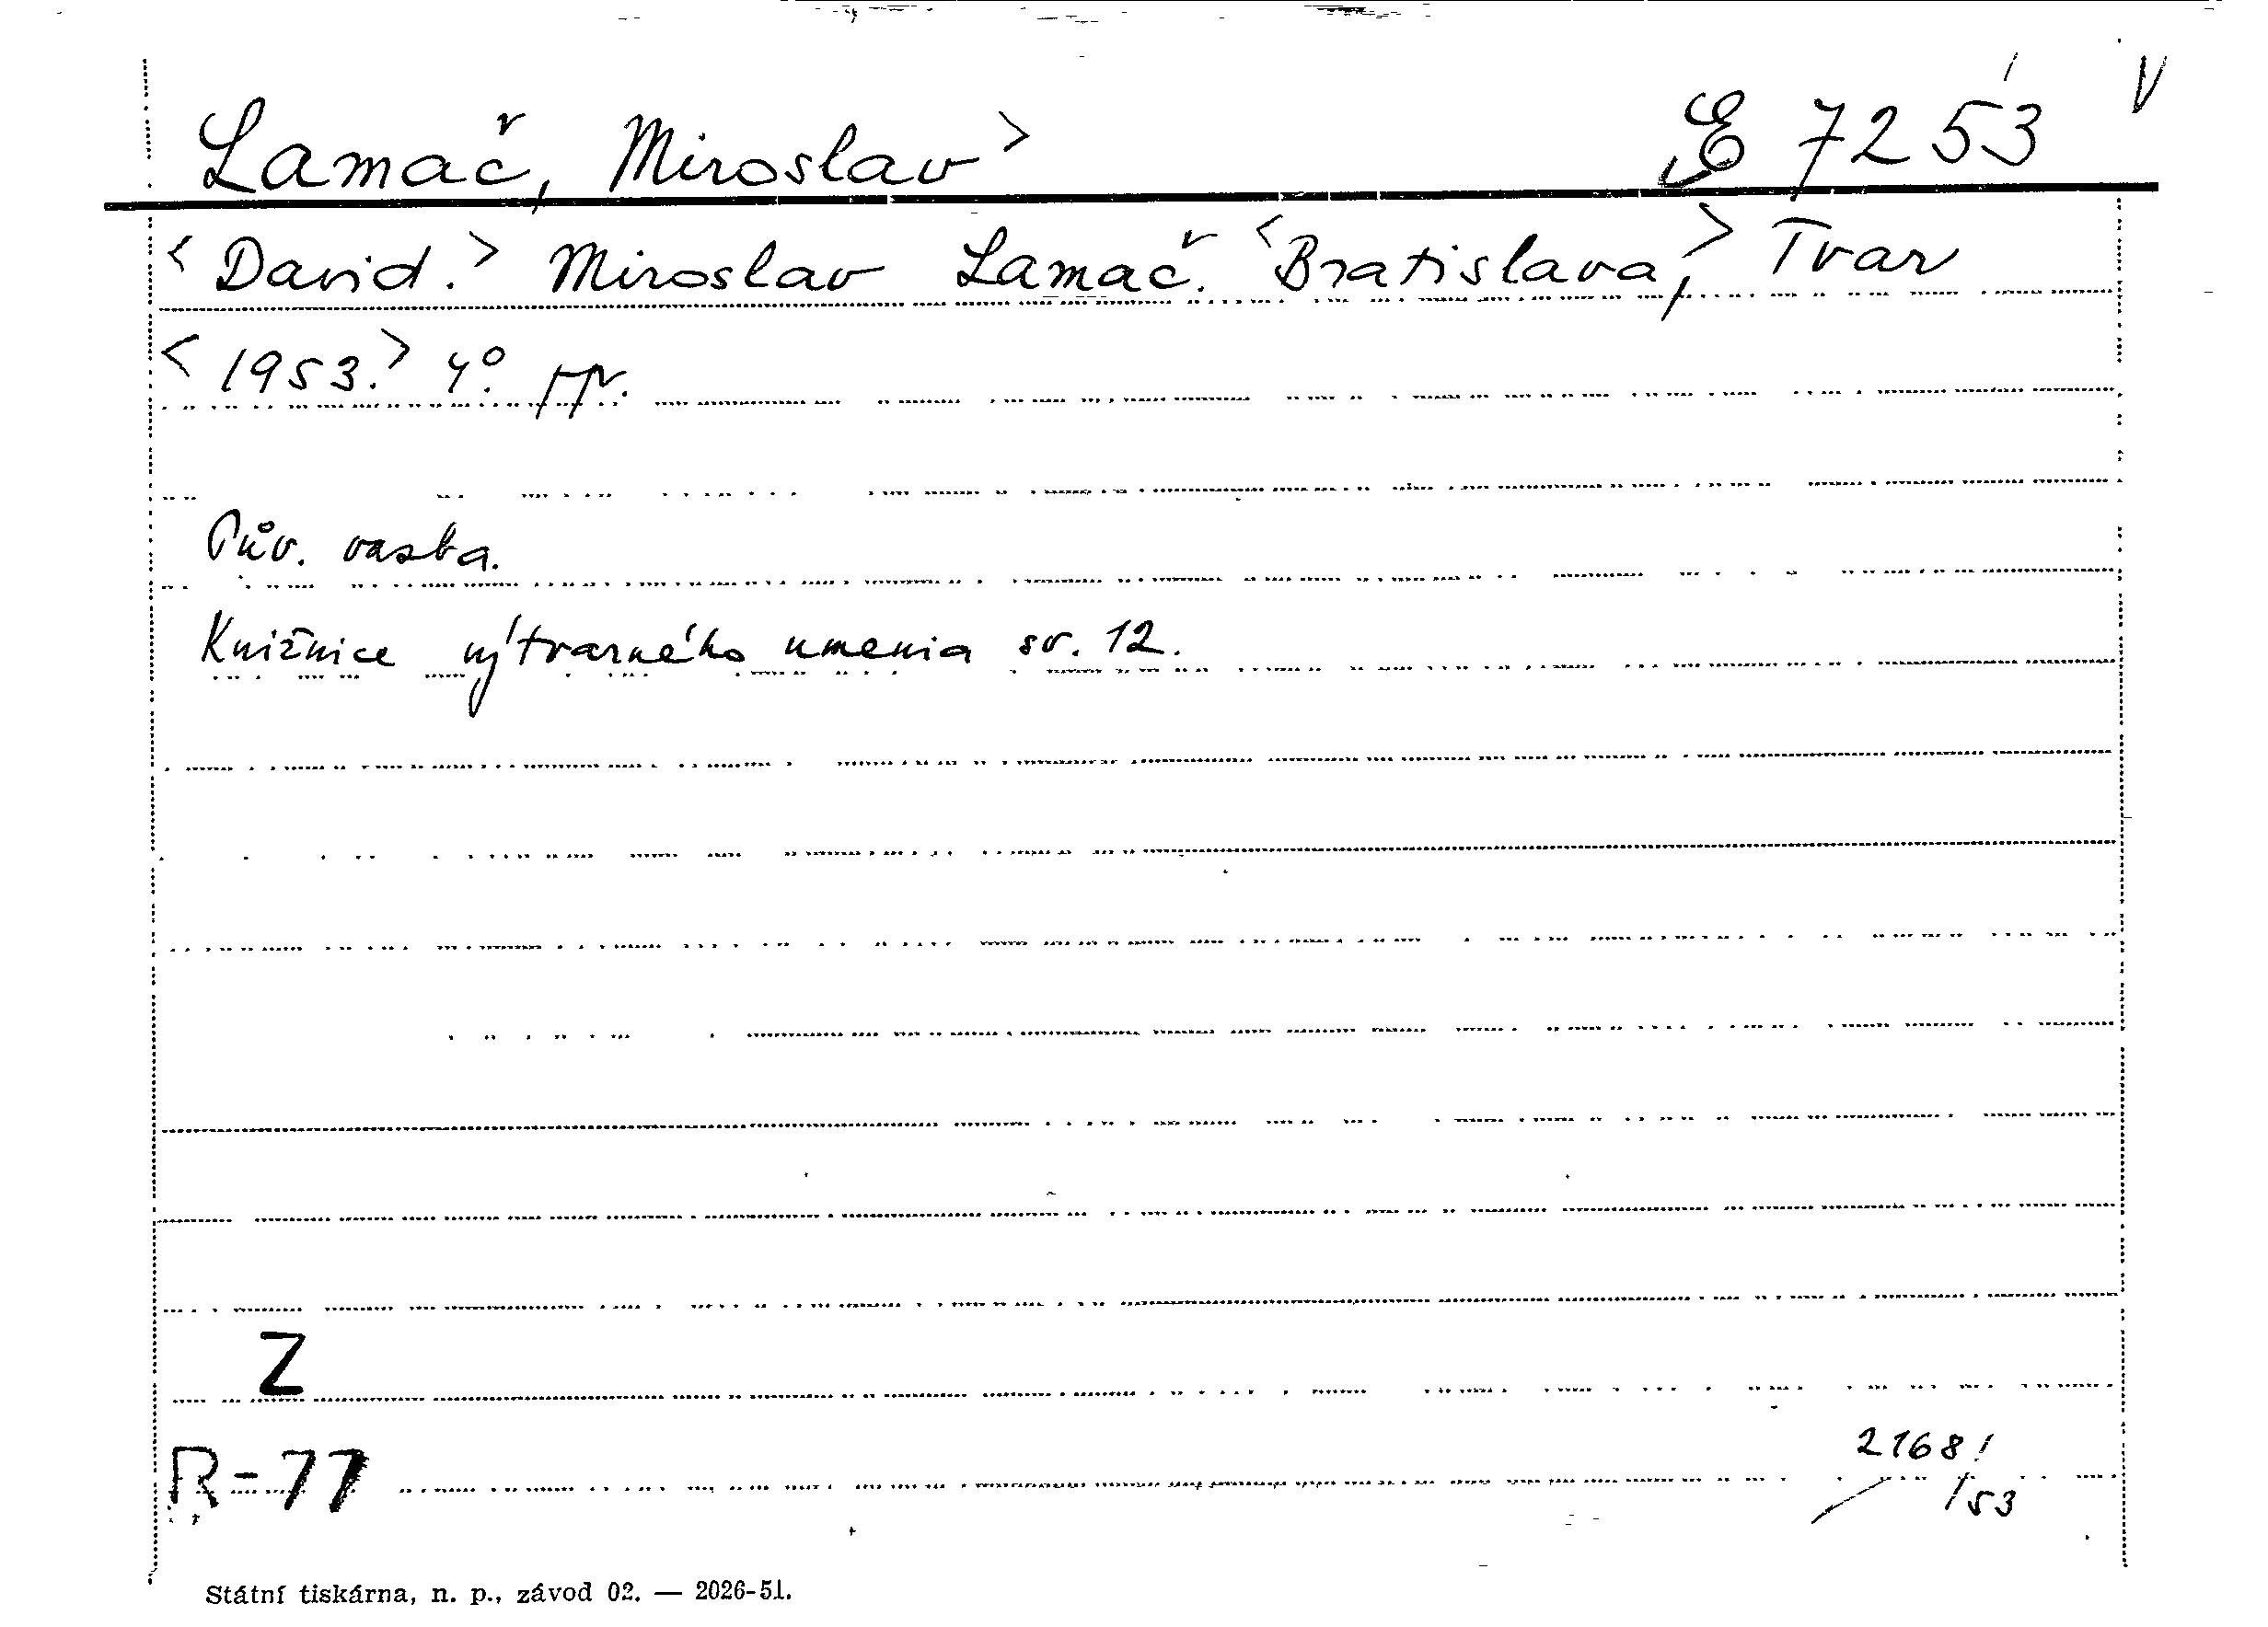 Lamač, Miroslav> E 7253 V
<David.> Miroslav Lamač. <Bratislava,> Tvar
<1953.> 4°.
Pův. vazba.
Knižnice výtvarného umenia sv. 12.
Z
R-77
2168!
/53
Státní tiskárna, n. p., závod 02. — 2026-51.